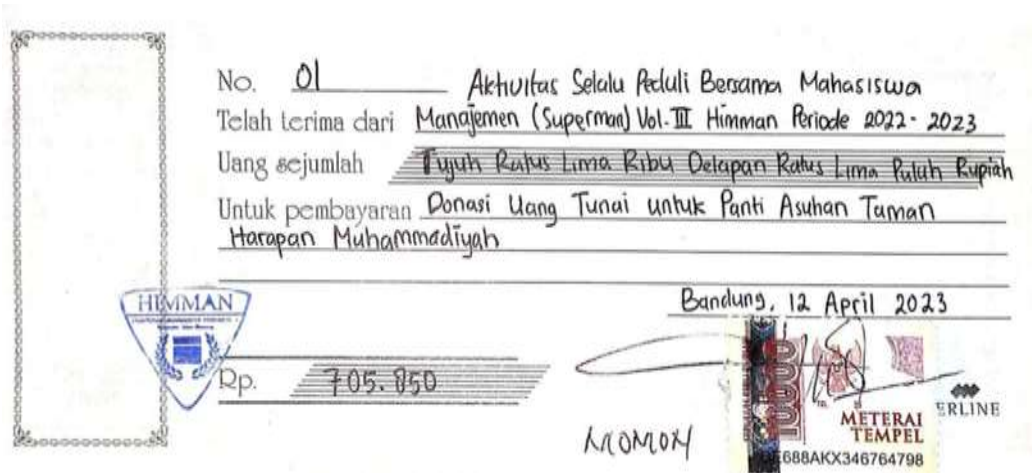 No. 01 Aktivitas Selalu Peduli Bersama Mahasiswa
Telah terima dari Manajemen (Superman) Vol. III Himman Periode 2022 - 2023
Uang sejumlah Tujuh Ratus Lima Ribu Delapan Ratus Lima Puluh Rupiah
Untuk pembayaran Donasi Uang Tunai untuk Panti Asuhan Taman
Harapan Muhammadiyah
Bandung, 12 April 2023
HIMMAN
Rp. 705.850
10000
METERAI
TEMPEL
E688AKX346764798
ERLINE
MOMON